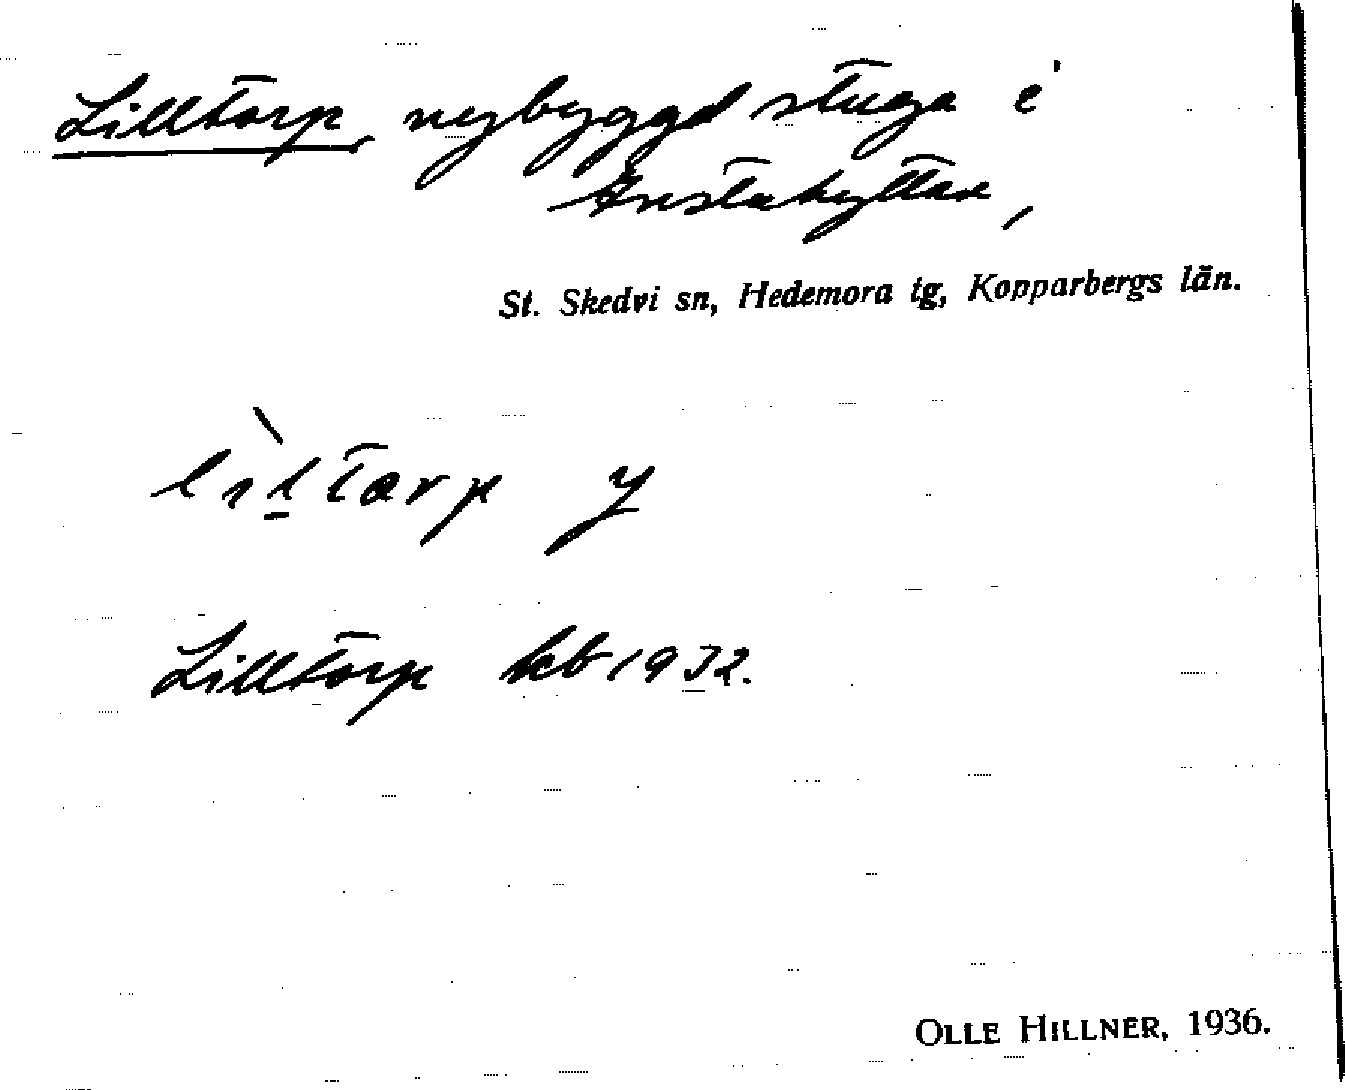 Lilltorp, nybyggd stuga i
Anstahyttan,
St. Skedvi sn, Hedemora tg, Kopparbergs län.
Lilltorp kb 1932.
OLLE HILLNER, 1936.